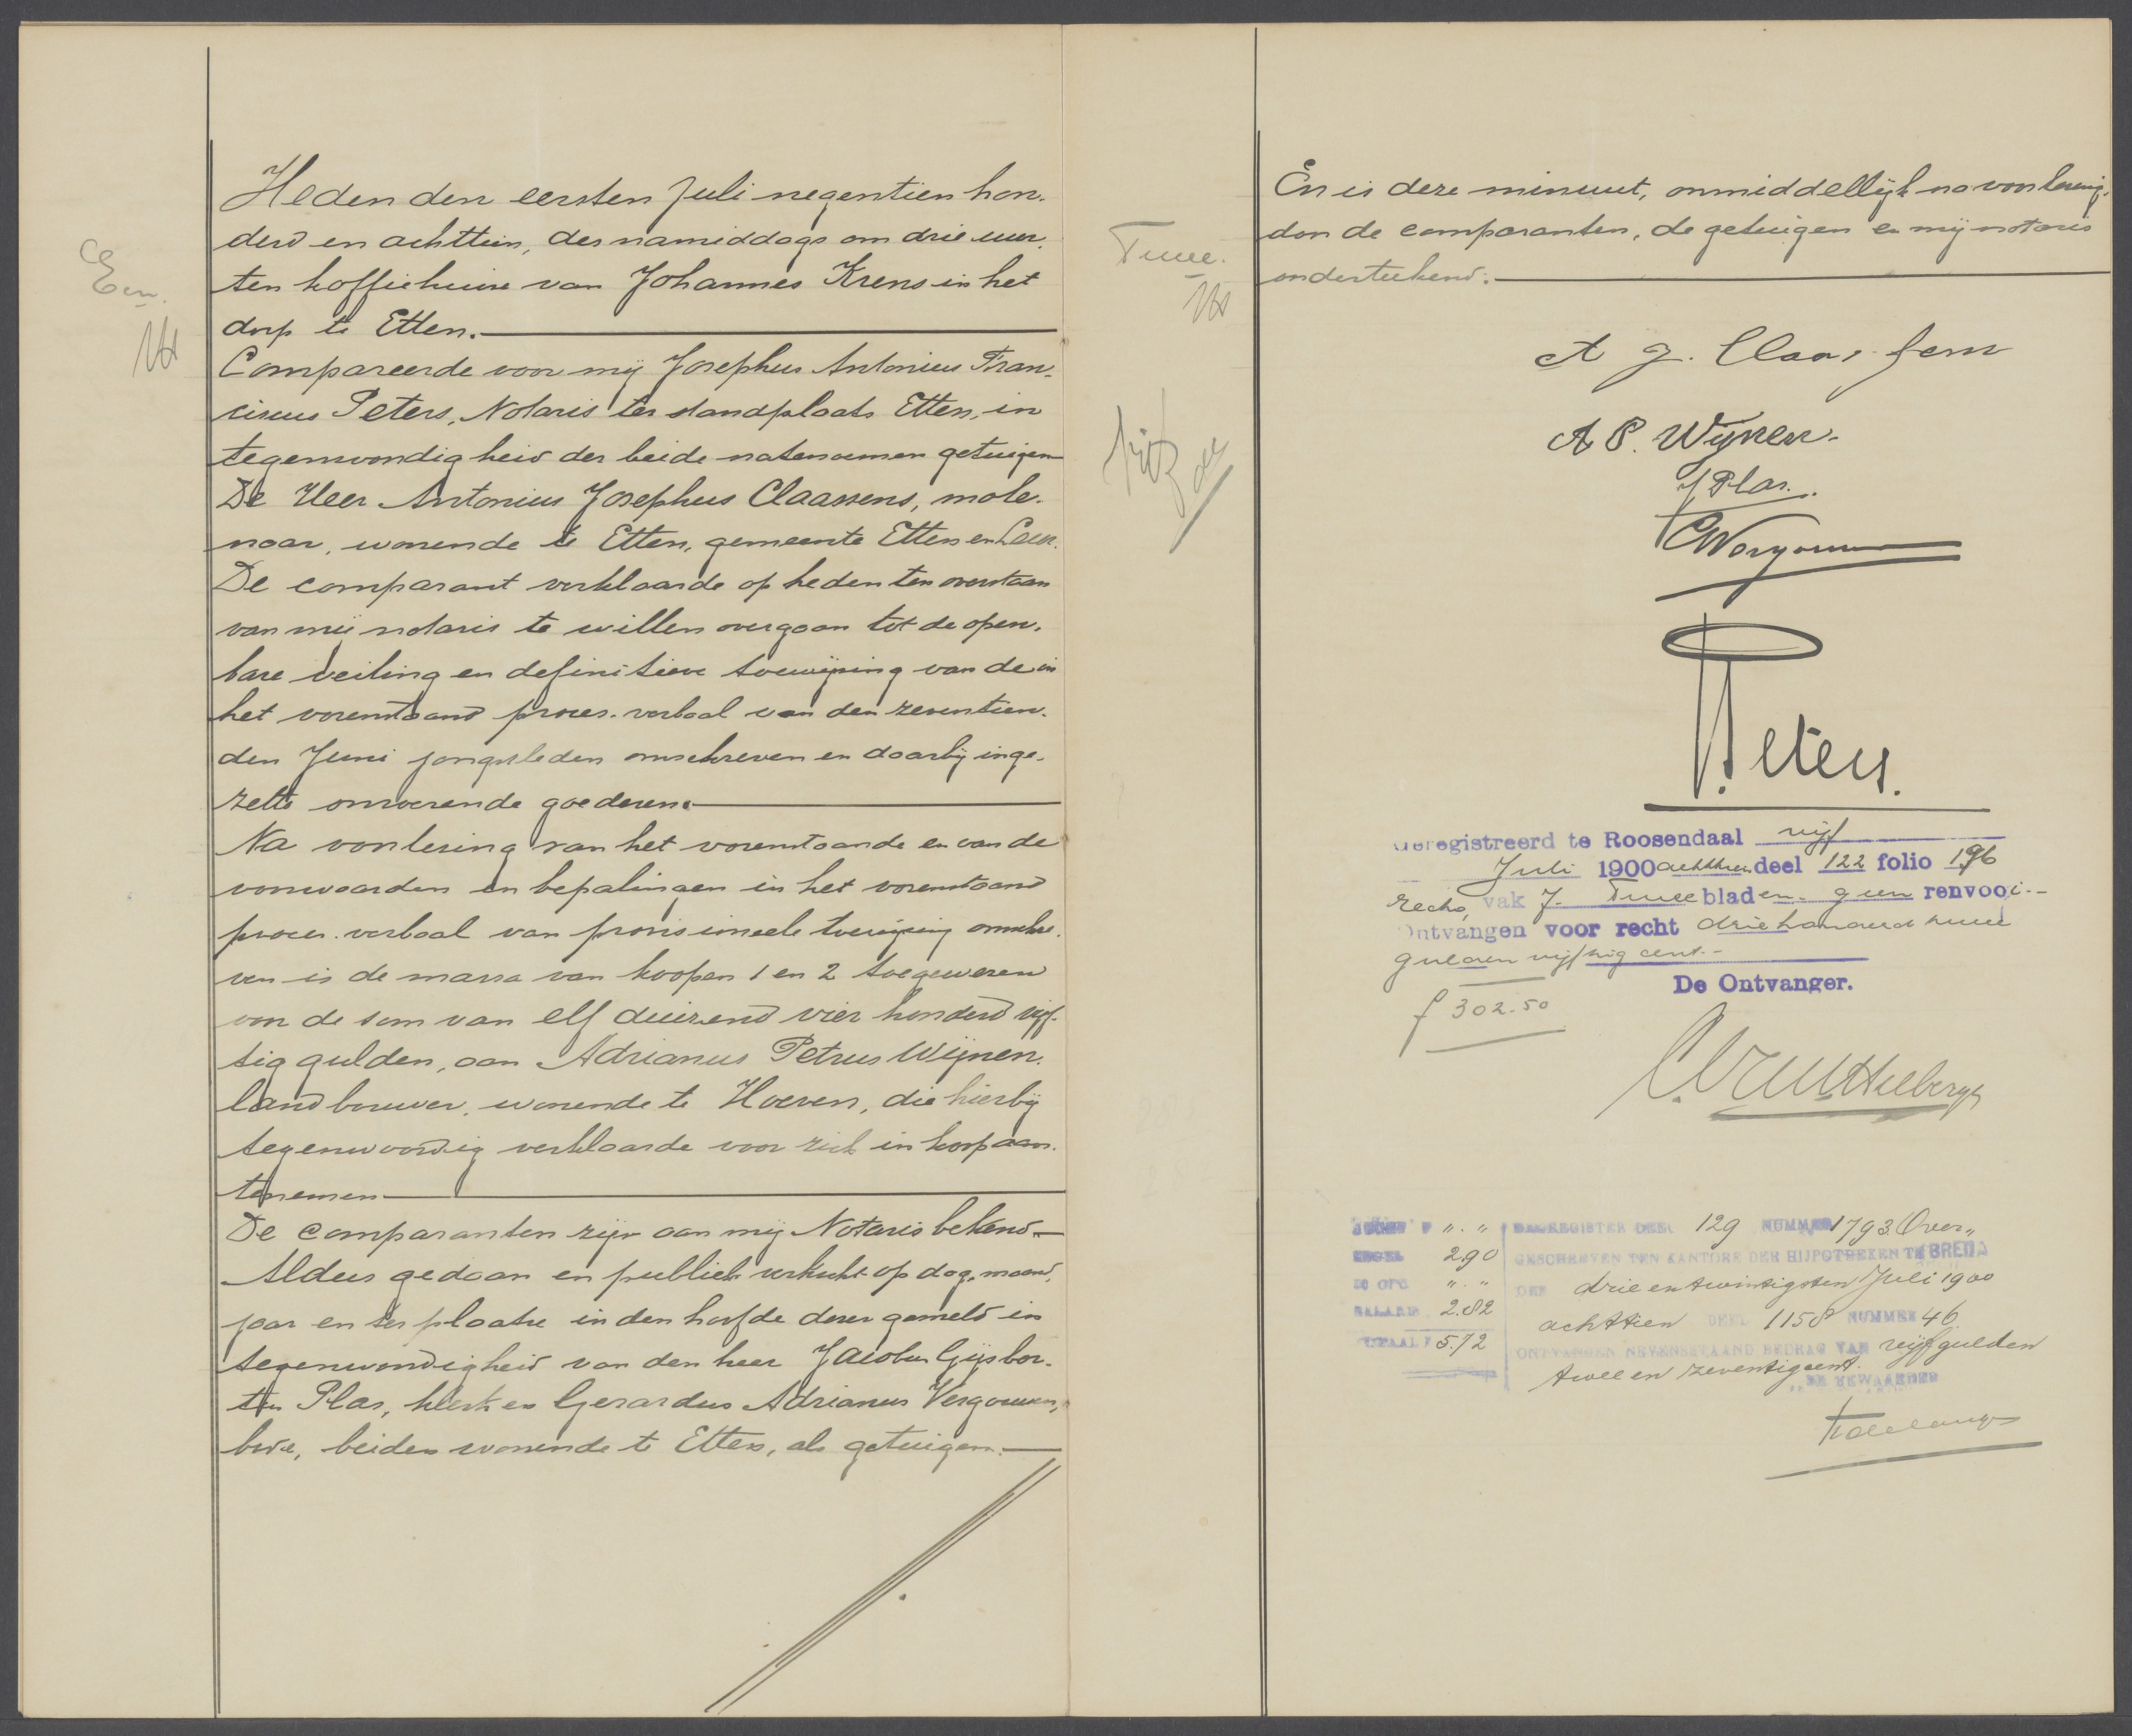 Een.
Heden den eersten Juli negentien hon-
derd en achttien, des namiddags om drie uur,
ten koffiehuize van Johannes Krens in het
dorp te Etten.
Compareerde voor mij Josephus Antonius Fran-
ciscus Peters, Notaris ter standplaats Etten, in
tegenwoordigheid der beide natenoemen getuigen
De Heer Antonius Josephus Claassens, mole-
naar, wonende te Etten, gemeente Etten en Leur.
De comparant verklaarde op heden ten overstaan
van mij notaris te willen overgaan tot de open-
bare veiling en definitieve toewijzing van de in
het vorenstaand proces-verbaal van den zeventien-
den Juni jongstleden omschreven en daarbij inge-
zette onroerende goederen.
Na voorlezing van het vorenstaande en van de
voorwaarden en bepalingen in het vorenstaand
proces-verbaal van provisioneele toewijzing omschre-
ven is de massa van koopen 1 en 2 toegewezen
voor de som van elf duizend vier honderd vijf-
tig gulden, aan Adrianus Petrus Wijnen,
landbouwer, wonende te Hoeven, die hierbij
tegenwoordig verklaarde voor zich in koop aan
te nemen
De comparanten zijn aan mij Notaris bekend
Aldus gedaan en publiek verkocht op dag, maand,
jaar en ter plaatse in den hoofde dezer gemeld in
tegenwoordigheid van den heer Jacobus Gijsber-
tus Plas, klerk en Gerardus Adrianus Vergouwen,
bode, beiden wonende te Etten, als getuigen.
Twee.
En is deze minuut, onmiddellijk na voorlezing,
door de comparanten, de getuigen en mij notaris
onderteekend.
A J. Claassens
A P. Wijnen.
J Plas.
GVergouwen
Peters.
Geregistreerd te Roosendaal vijf
Juli 1900 achttien deel 122 folio 196
recto, vak 7. Twee bladen. geen renvooi.
Ontvangen voor recht driehonderd twee
gulden vijftig cent.
De Ontvanger.
f 302.50
ZEGEL 2.90
SALARIS 2.82
TOTAAL F 5.72
DAGREGISTER DEEL 129 NUMMER 1793. Over„
GESCHREVEN TEN KANTORE DER HIJPOTHEKEN TE BREDA
DEN drie en twintigsten Juli 1900
achttien DEEL 1158 NUMMER 46
ONTVANGEN NEVENSSTAAND BEDRAG VAN vijf gulden
twee en zeventig cent.
DE BEWAARDER